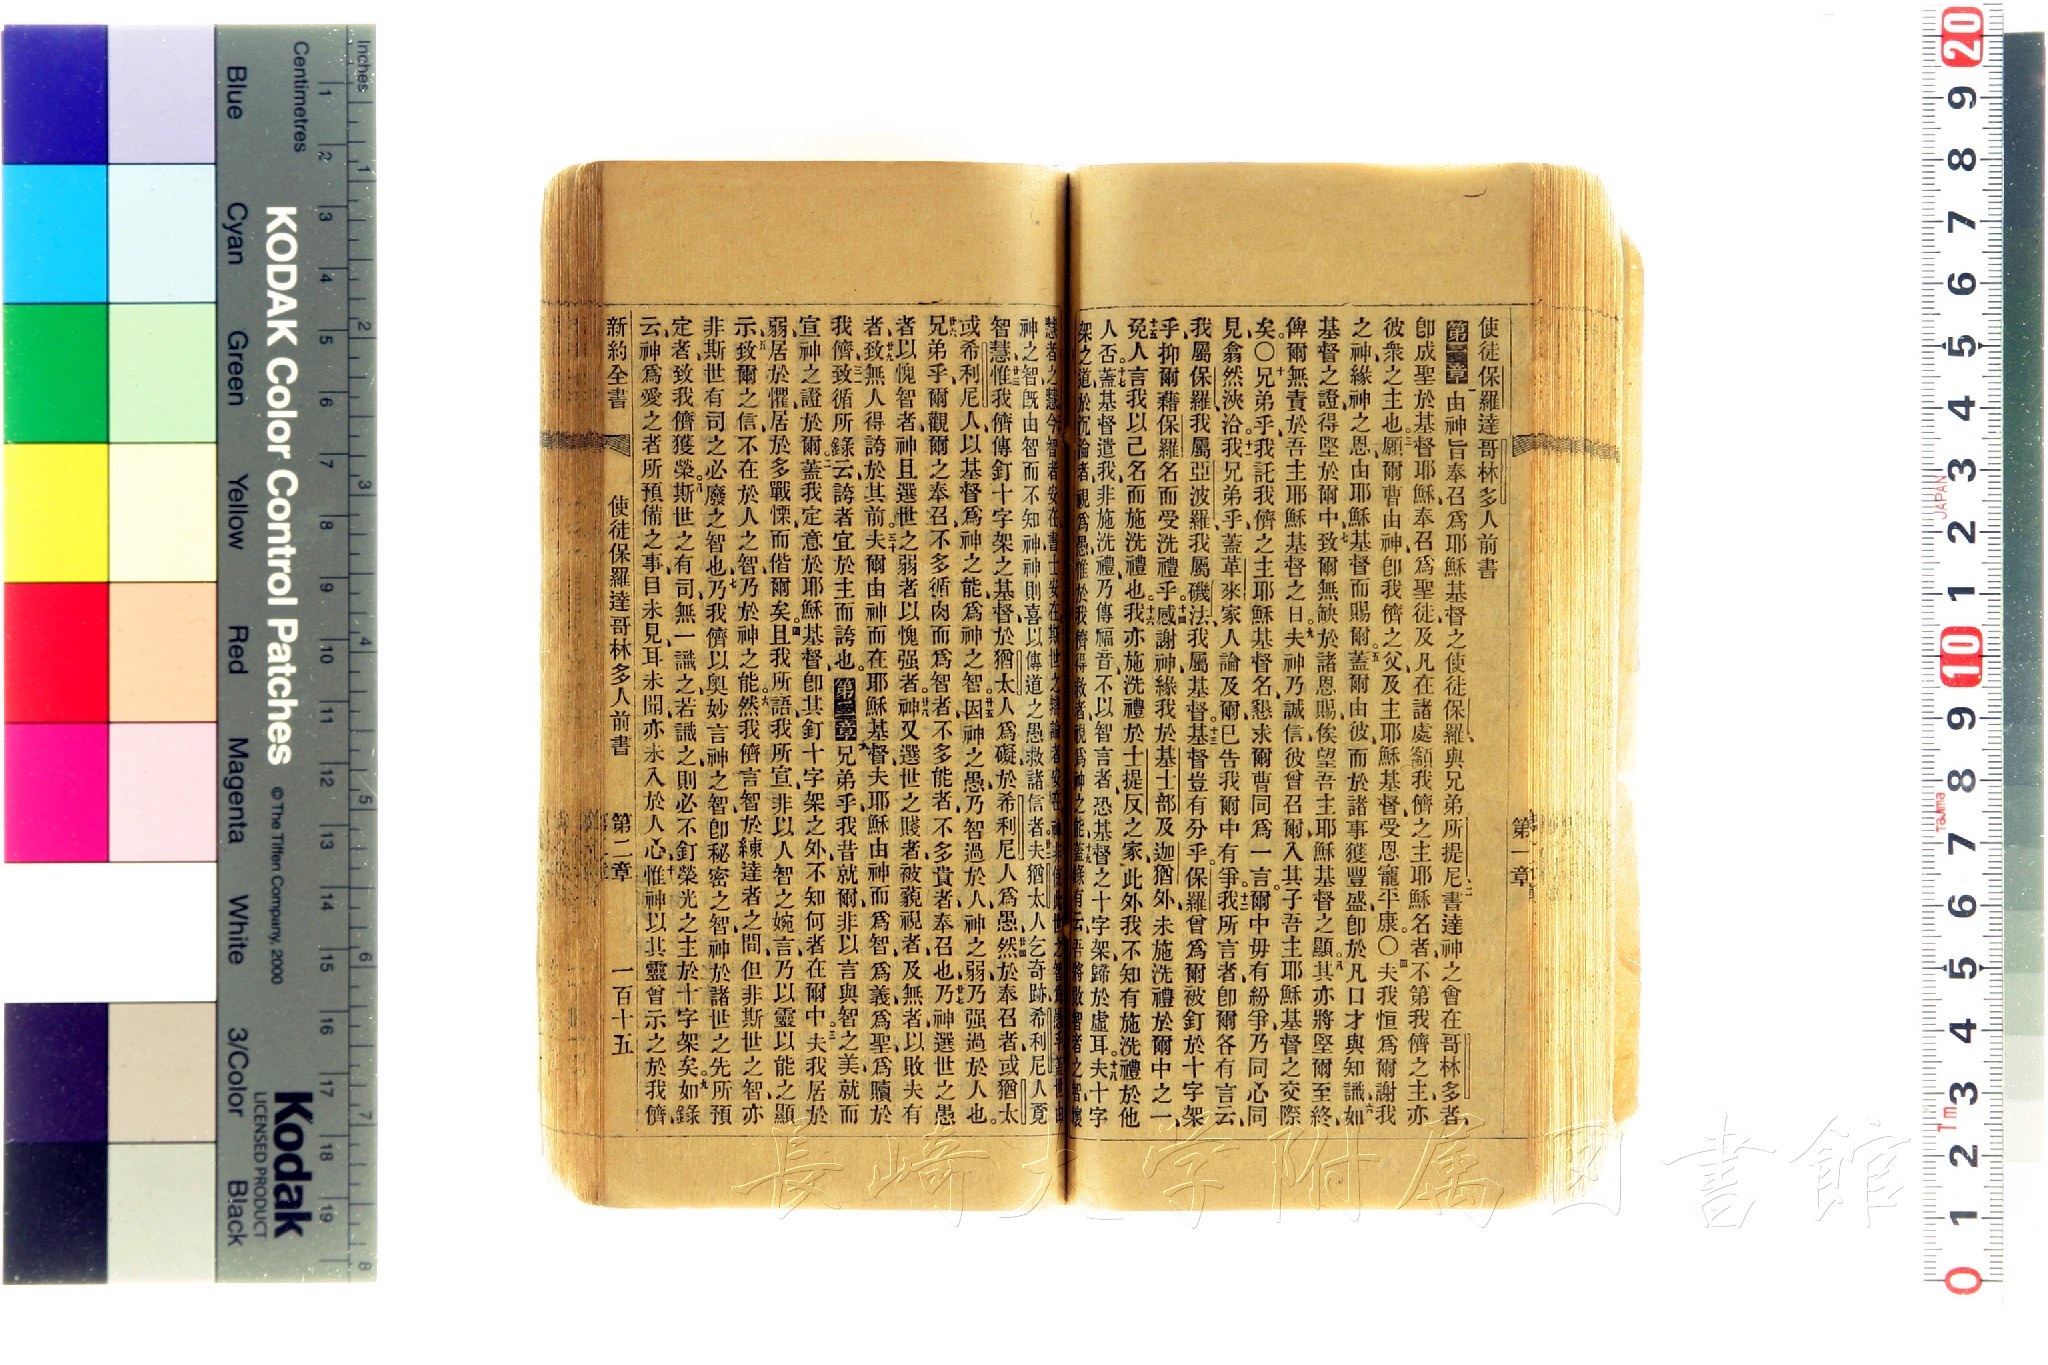 使徒保羅達哥林多人前書
第一章 一由神旨奉召爲耶穌基督之使徒保羅與兄弟所提尼二書達神之會在哥林多者、
卽成聖於基督耶穌、奉召爲聖徒、及凡在諸處、籲我儕之主耶穌名者、不第我儕之主、亦
彼衆之主也。三願爾曹由神卽我儕之父、及主耶穌基督、受恩寵平康。〇四夫我恒爲爾謝我
之神、緣神之恩、由耶穌基督而賜爾。五蓋爾由彼而於諸事獲豐盛、卽於凡口才與知識、六如
基督之證、得堅於爾中、七致爾無缺於諸恩賜、俟望吾主耶穌基督之顯。八其亦將堅爾至終、
俾爾無責於吾主耶穌基督之日。九夫神乃誠信、彼曾召爾入其子吾主耶穌基督之交際
矣。〇十兄弟乎、我託我儕之主耶穌基督名、懇求爾曹同爲一言、爾中毋有紛爭、乃同心同
見、翕然浹洽。十一我兄弟乎、蓋革來家人論及爾、已告我爾中有爭。十二我所言者、卽爾各有言云、
我屬保羅、我屬亞波羅、我屬磯法、我屬基督。十三基督豈有分乎。保羅曾爲爾被釘於十字架
乎、抑爾藉保羅名而受洗禮乎。十四感謝神、緣我於基士部及迦猶外、未施洗禮於爾中之一、
十五免人言我以己名而施洗禮也。十六我亦施洗禮於士提反之家、此外我不知有施洗禮於他
人否。十七蓋基督遣我、非施洗禮、乃傳福音、不以智言者、恐基督之十字架歸於虛耳。十八夫十字
架之道、於沉淪者視爲愚、惟於我儕得救者視爲神之能。十九蓋錄有云、吾將敗智者之智、廢
第一章
慧者之慧。今智者安在、書士安在、斯世之辯論者安在、神非使此世之智爲愚乎、蓋世由
神之智、旣由智而不知神、神則喜以傳道之愚、救諸信者。廿二夫猶太人乞奇跡、希利尼人覓
智慧、廿三惟我儕傳釘十字架之基督、於猶太人爲礙、於希利尼人爲愚。廿四然於奉召者、或猶太
或希利尼人、以基督爲神之能、爲神之智。廿五因神之愚、乃智過於人、神之弱、乃强過於人也。
廿六兄弟乎、觀爾之奉召、不多循肉而爲智者、不多能者、不多貴者奉召也。廿七乃神選世之愚
者、以愧智者、神且選世之弱者、以愧强者、廿八神又選世之賤者、被藐視者、及無者、以敗夫有
者、廿九致無人得誇於其前。三十夫爾由神而在耶穌基督、夫耶穌由神而爲智、爲義、爲聖、爲贖於
我儕、三一致循所錄云、誇者宜於主而誇也。第二章 一兄弟乎、我昔就爾、非以言與智之美、就而
宣神之證於爾。二蓋我定意於耶穌基督、卽其釘十字架之外、不知何者在爾中。三夫我居於
弱、居於懼、居於多戰慄、而偕爾矣。四且我所語、我所宣、非以人智之婉言、乃以靈以能之顯
示、五致爾之信、不在於人之智、乃於神之能。六然我儕言智、於練達者之間、但非斯世之智、亦
非斯世有司之必廢之智也、七乃我儕以奧妙言神之智、卽秘密之智、神於諸世之先、所預
定者、致我儕獲榮。八斯世之有司無一識之、若識之、則必不釘榮光之主於十字架矣。九如錄
云、神爲愛之者所預備之事、目未見、耳未聞、亦未入於人心、十惟神以其靈曾示之於我儕、
新約全書 使徒保羅達哥林多人前書 第二章 一百十五
Inches
Centimetres
1 2 3 4 5 6 7 8 9 10 11 12 13 14 15 16 17 18 19
1 2 3 4 5 6 7 8
Blue Cyan Green Yellow Red Magenta White 3/Color Black
KODAK Color Control Patches © The Tiffen Company, 2000
Kodak
LICENSED PRODUCT
20 9 8 7 6 5 4 3 2 1 10 9 8 7 6 5 4 3 2 1 0
JAPAN
Tajima
Tm
長崎大学附属図書館